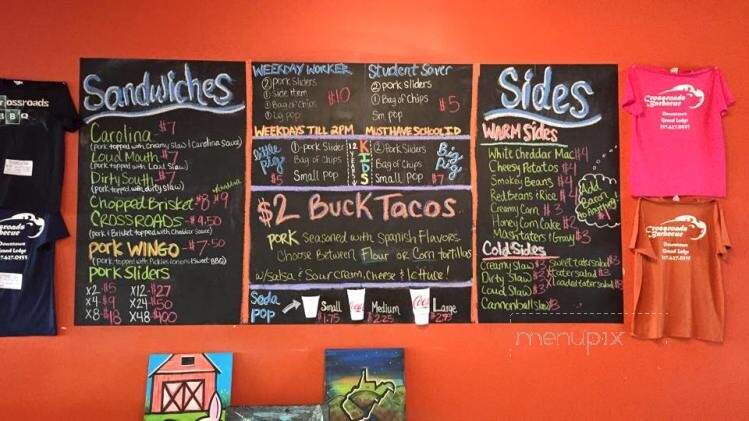 Sandwiches
Carolina $7
(pork topped with creamy slaw & Carolina sauce)
Loud Mouth $7
(pork topped with Loud Slaw)
Dirty South $7
(pork topped with dirty slaw)
Chopped Brisket $8 $9
CROSSROADS $9.50
(pork & Brisket topped with Cheddar Sauce)
pork WINGO $7.50
pork Sliders
x2 $5 x12 $27
x4 $9 x24 $50
x8 $18 x48 $100
WEEKDAY WORKER
② pork Sliders
① Side Item
① Bag of Chips $10
① Lg pop
WEEKDAYS TILL 2PM
Student Saver
② pork Sliders
① Bag of Chips $5
Sm pop
MUST HAVE SCHOOL I.D
little Pig $5
①-pork Slider
Bag of Chips
Small Pop
KIDS
12 YEARS
Big Pig $7
② Pork Sliders
Bag of Chips
Small Pop
$2 BUCK TACOS
PORK Seasoned with Spanish Flavors.
Choose Between Flour or Corn tortillas
w/Salsa & Sour cream, Cheese & lettuce!
Soda pop
Small $1.75
Medium $2.25
Large
Sides
WARM Sides
White Cheddar Mac $4
Cheesy Potatos $4
Smokey Beans $4
Red beans & Rice $4
Creamy Corn $3
Honey Corn Cake $2
Mashtaters & Gravy $3
Add Bacon to Anything $1
Cold Sides
Creamy Slaw $3
Dirty Slaw $3
Loud Slaw $3
Cannonball Slaw $3
Sweet tater salad $3
tater salad $3
Loaded tater salad $3
Crossroads
BBQ
Crossroads
Barbecue
Downtown
Grand Ledge
517.627.0155
Crossroads
Barbecue
Downtown
Grand Ledge
517.627.0155
Crossroads
Barbecue
Downtown
Grand Ledge
517.627.0155
menupix